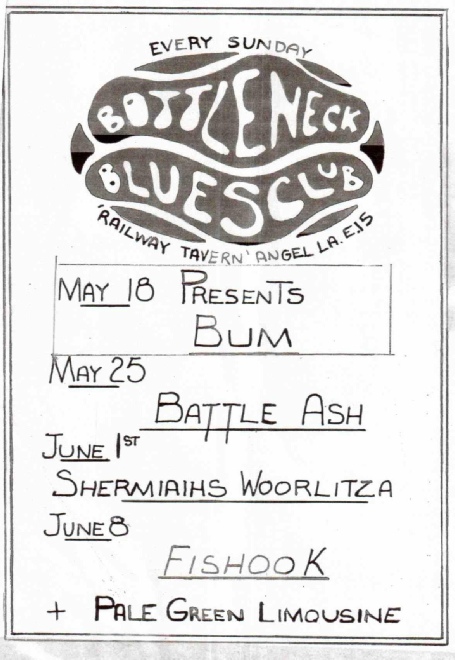 EVERY SUNDAY
BOTTLENECK
BLUESCLUB
'RAILWAY TAVERN' ANGEL LA. E.15
MAY 18 PRESENTS
BUM
MAY 25
BATTLE ASH
JUNE 1ST
SHERMIAIHS WOORLITZA
JUNE 8
FISHOOK
+ PALE GREEN LIMOUSINE